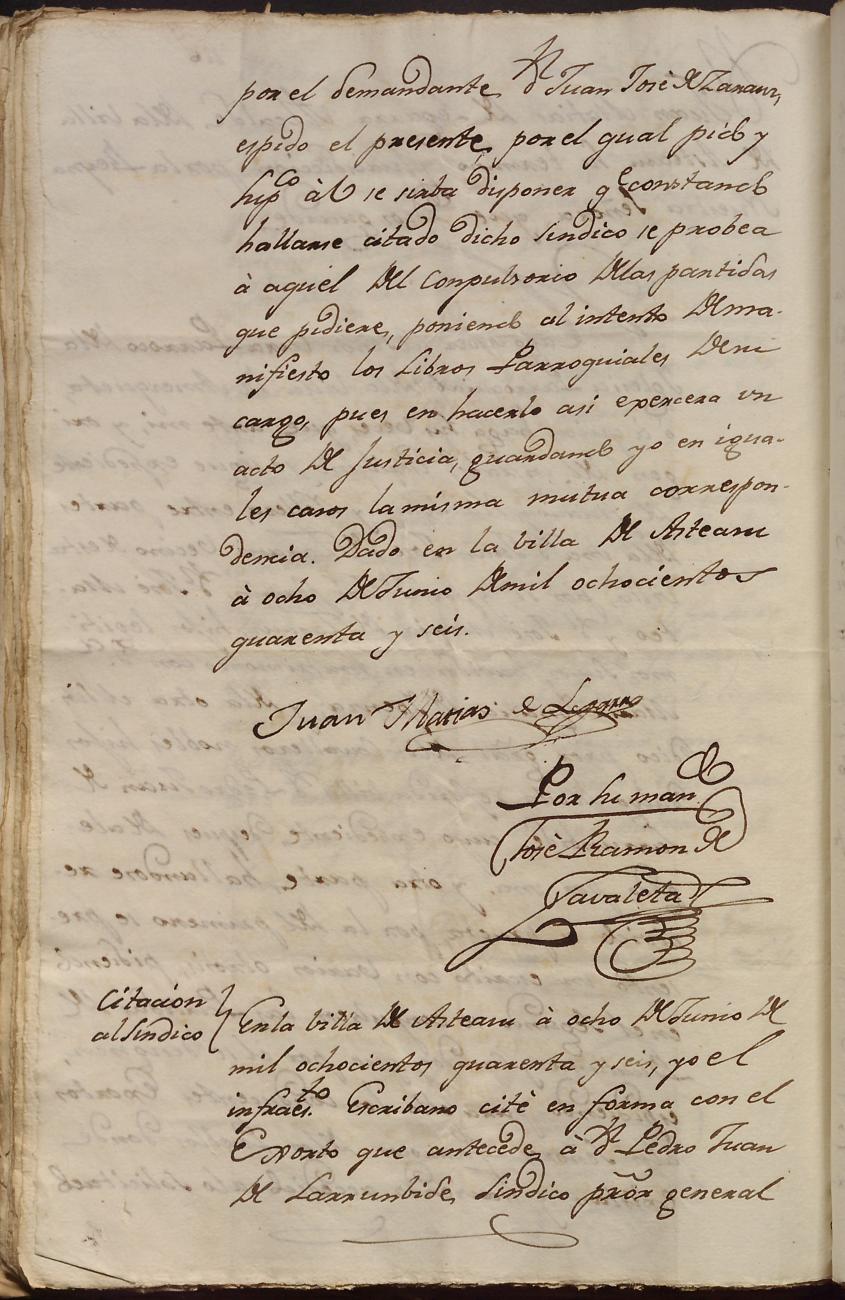 por el demandante Dn Juan José de Zarauz,
espido el presente, por el qual pido y
supco à V se sirba disponer qe constando
hallarse citado dicho Sindico se probea
à aquel del Conpulsorio de las partidas
que pidiere, poniendo al intento de ma-
nifiesto los Libros Parroquiales de su
cargo, pues en hacerlo asi expercera un
acto de Justicia, guardando yo en igua-
les casos la misma mutua correspon-
dencia. Dado en la villa de Asteasu
à ocho de Junio de mil ochocientos
quarenta y seis.
Juan Matias de
Por su man
José Ramon de
Zavaleta
Citacion
al Sindico
En la billa de Asteasu à ocho de Junio de
mil ochocientos quarenta y seis, yo el
infraesto. Escribano cité en forma con el
Exorto que antecede, à Dn Pedro Juan
de Larrunbide, Sindico pror general